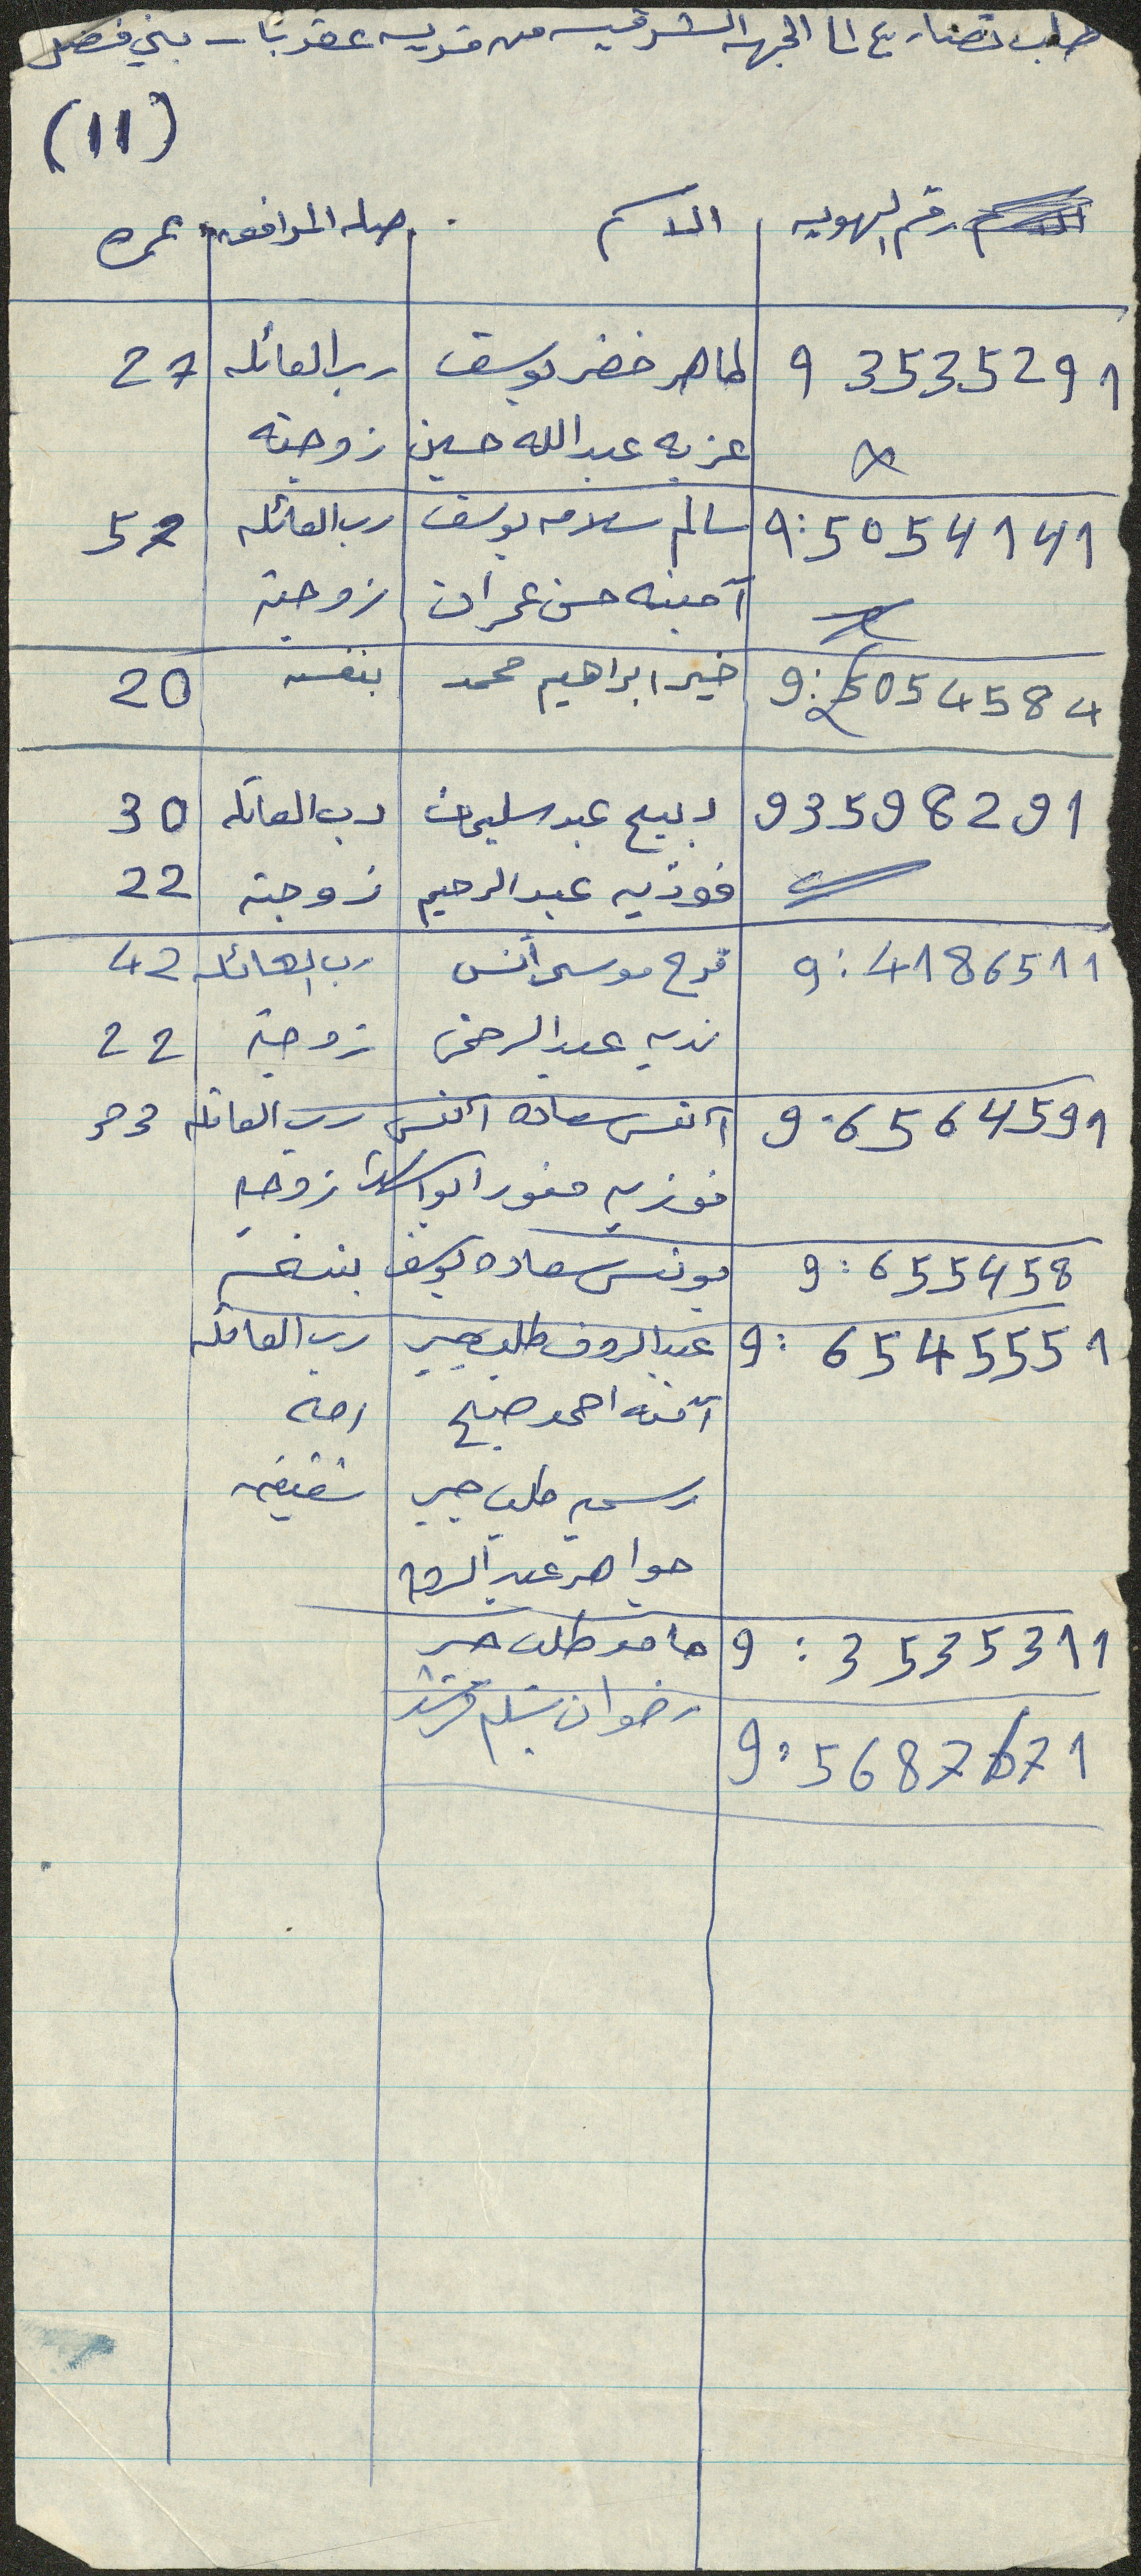 طلب تصاريح الى الجهه الشرقيه من قريه عقربا - بني فضل
(11)
رقم الهويه الاسم صله المرافق عمره
9 3535291 طاهر خضر يوسف رب العائله 27
عزيه عبد الله حسين زوجته
9:5054141 سالم سلامه يوسف رب العائله 57
آمينه حسن عمران زوجته
9:5054584 خير ابراهيم محمد بنفسه 20
93598291 ربيع عبد سليمان رب العائله 30
فوزيه عبد الرحيم زوجته 22
9:4186511 فرح موسى أنس رب العائله 42
نديه عبد الرحمن زوجته 22
9:6564591 آنس سعاده آنس رب العائله 33
فوزيه زوجته
9:655458 يونس سعاده يوسف بنفسه
9:6545551 عبد الروف طلب جبر رب العائله
آمنه احمد صبح امه
رسميه طلب جبر شقيقه
جواهر عبد الروف
9:3535311 حامد طلب جبر
9:5687671 رضوان